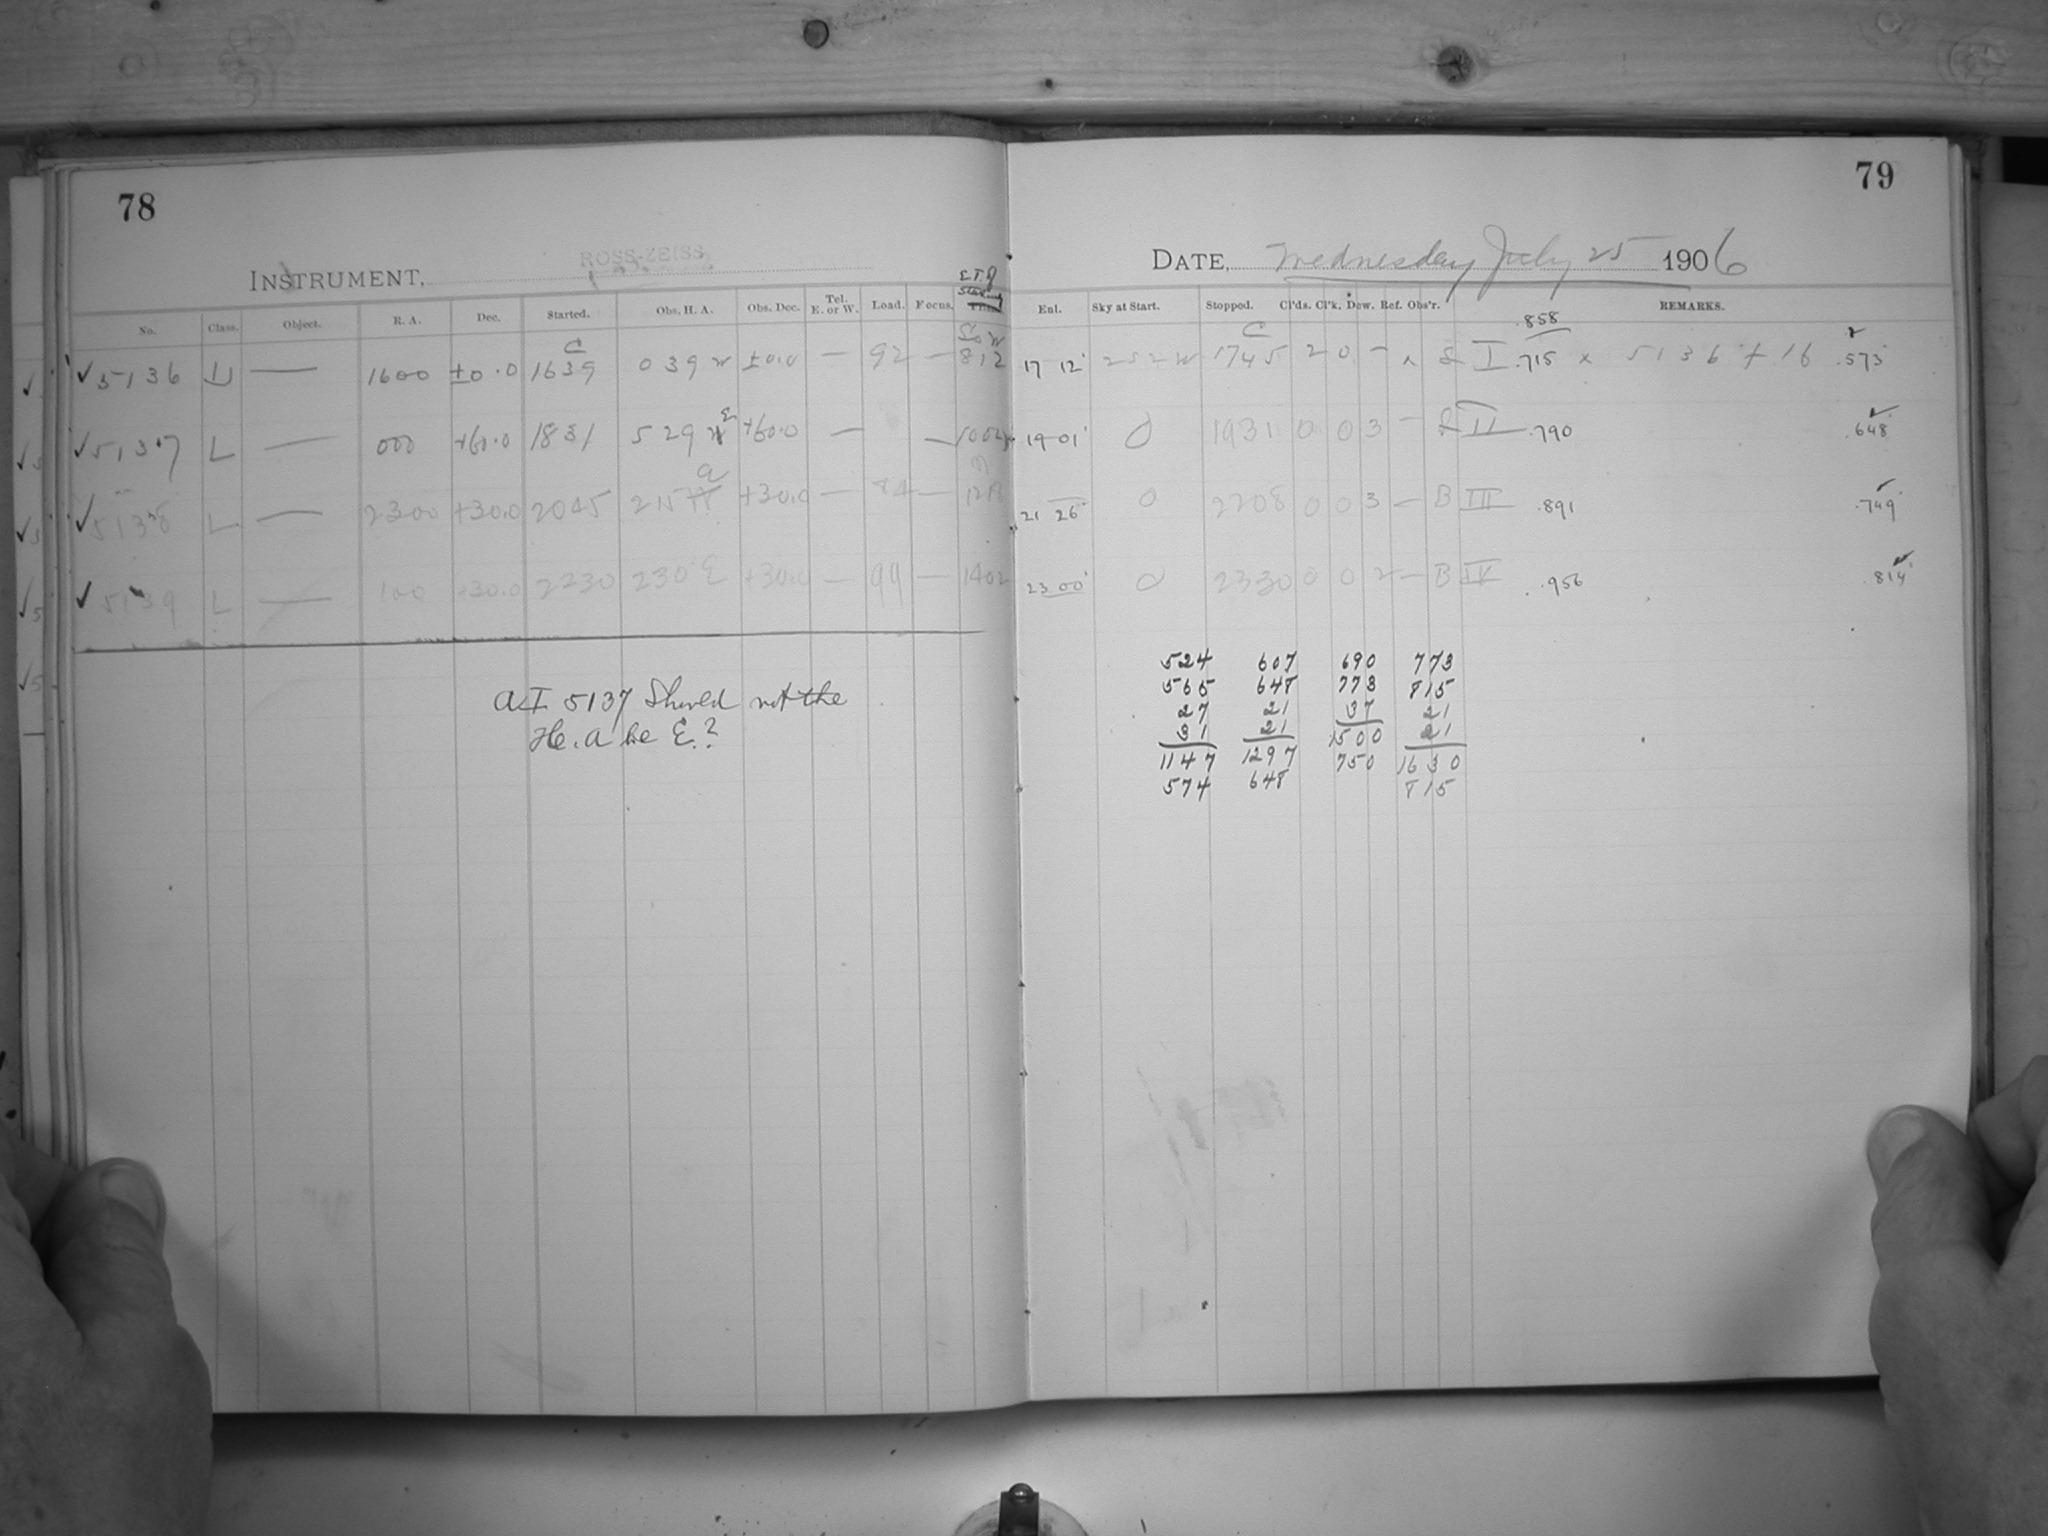 78
ROSS-ZEISS
INSTRUMENT,
No. Class. Object. R. A. Dec. Started. Obs. H. A. Obs. Dec. Tel. E. or W. Load. Focus.
C
✓ 5136 — 1600 ±0.0 1639 039 W ±0.0 — 92 — 812
E
✓ 5137 L — 000 +60.0 1831 529 +60.0 — —
E
✓ 5138 L — 2300 +30.0 2045 215 +30.0 — 84 —
✓ 5139 L — 100 +30.0 2230 230 E +30.0 — 99 — 1402
A I 5137 Should not the
H. A be E.?
79
DATE, Wednesday July 25 1906
Enl. Sky at Start. Stopped. Cl'ds. Cl'k. Dew. Ref. Obs'r. REMARKS.
C .858
17 12 252 W 1745 2 0 - I .715 x 5136 + 16 .573
19 01 0 1931 0 0 3 — II .790 .648
21 26 0 2208 0 0 3 — B III .891 .749
23 00 0 2330 0 0 2 — B IV .956 .814
524 607 690 773
565 648 773 815
27 21 37 21
31 21 1500 21
1147 1297 750 1630
574 648 815